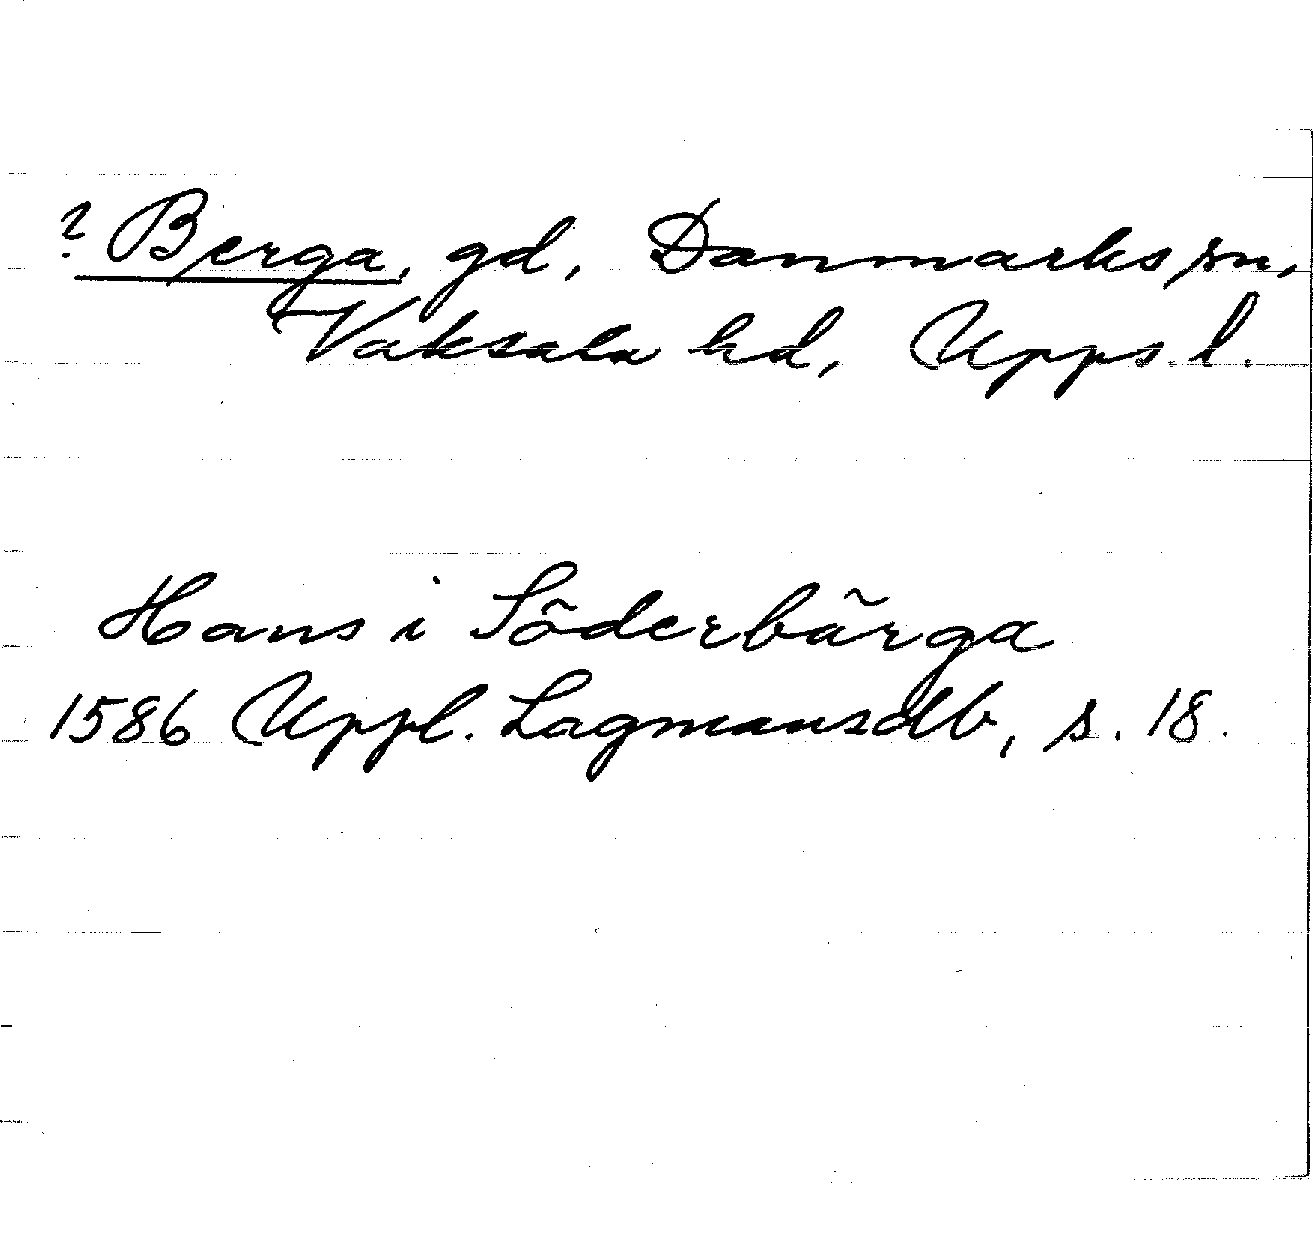 ? Berga, gd, Danmarks sn,
Vaksala hd, Upps. l.
Hans i Söderbärga
1586 Uppl. Lagmansdb, s. 18.